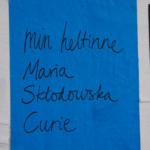 min heltinne
Maria
Skłodowska
Curie